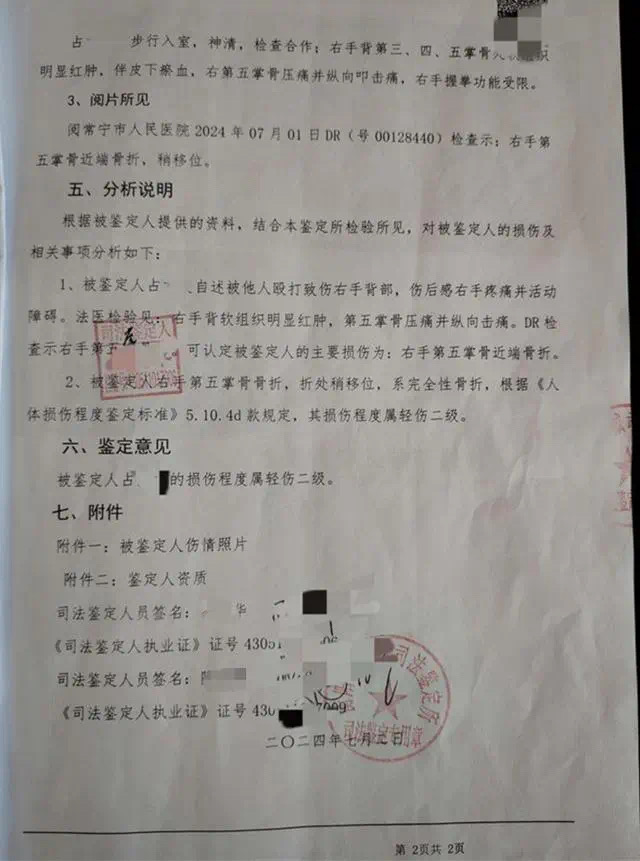 占 步行入室，神清，检查合作；右手背第三、四、五掌骨
明显红肿，伴皮下瘀血，右第五掌骨压痛并纵向叩击痛，右手握拳功能受限。
3、阅片所见
阅常宁市人民医院 2024 年 07 月 01 日 DR（号 00128440）检查示：右手第
五掌骨近端骨折，稍移位。
五、分析说明
根据被鉴定人提供的资料，结合本鉴定所检验所见，对被鉴定人的损伤及
相关事项分析如下：
1、被鉴定人占 自述被他人殴打致伤右手背部，伤后感右手疼痛并活动
障碍。法医检验见：右手背软组织明显红肿，第五掌骨压痛并纵向击痛。DR 检
查示右手第五 可认定被鉴定人的主要损伤为：右手第五掌骨近端骨折。
司法鉴定人
2、被鉴定人右手第五掌骨骨折，折处稍移位，系完全性骨折，根据《人
体损伤程度鉴定标准》5.10.4d 款规定，其损伤程度属轻伤二级。
六、鉴定意见
被鉴定人占 的损伤程度属轻伤二级。
七、附件
附件一：被鉴定人伤情照片
附件二：鉴定人资质
司法鉴定人员签名： 华
《司法鉴定人执业证》证号 4305
司法鉴定人员签名：
《司法鉴定人执业证》证号 430
司法鉴定所
司法鉴定专用章
二〇二四年七月三日
第 2页共 2页